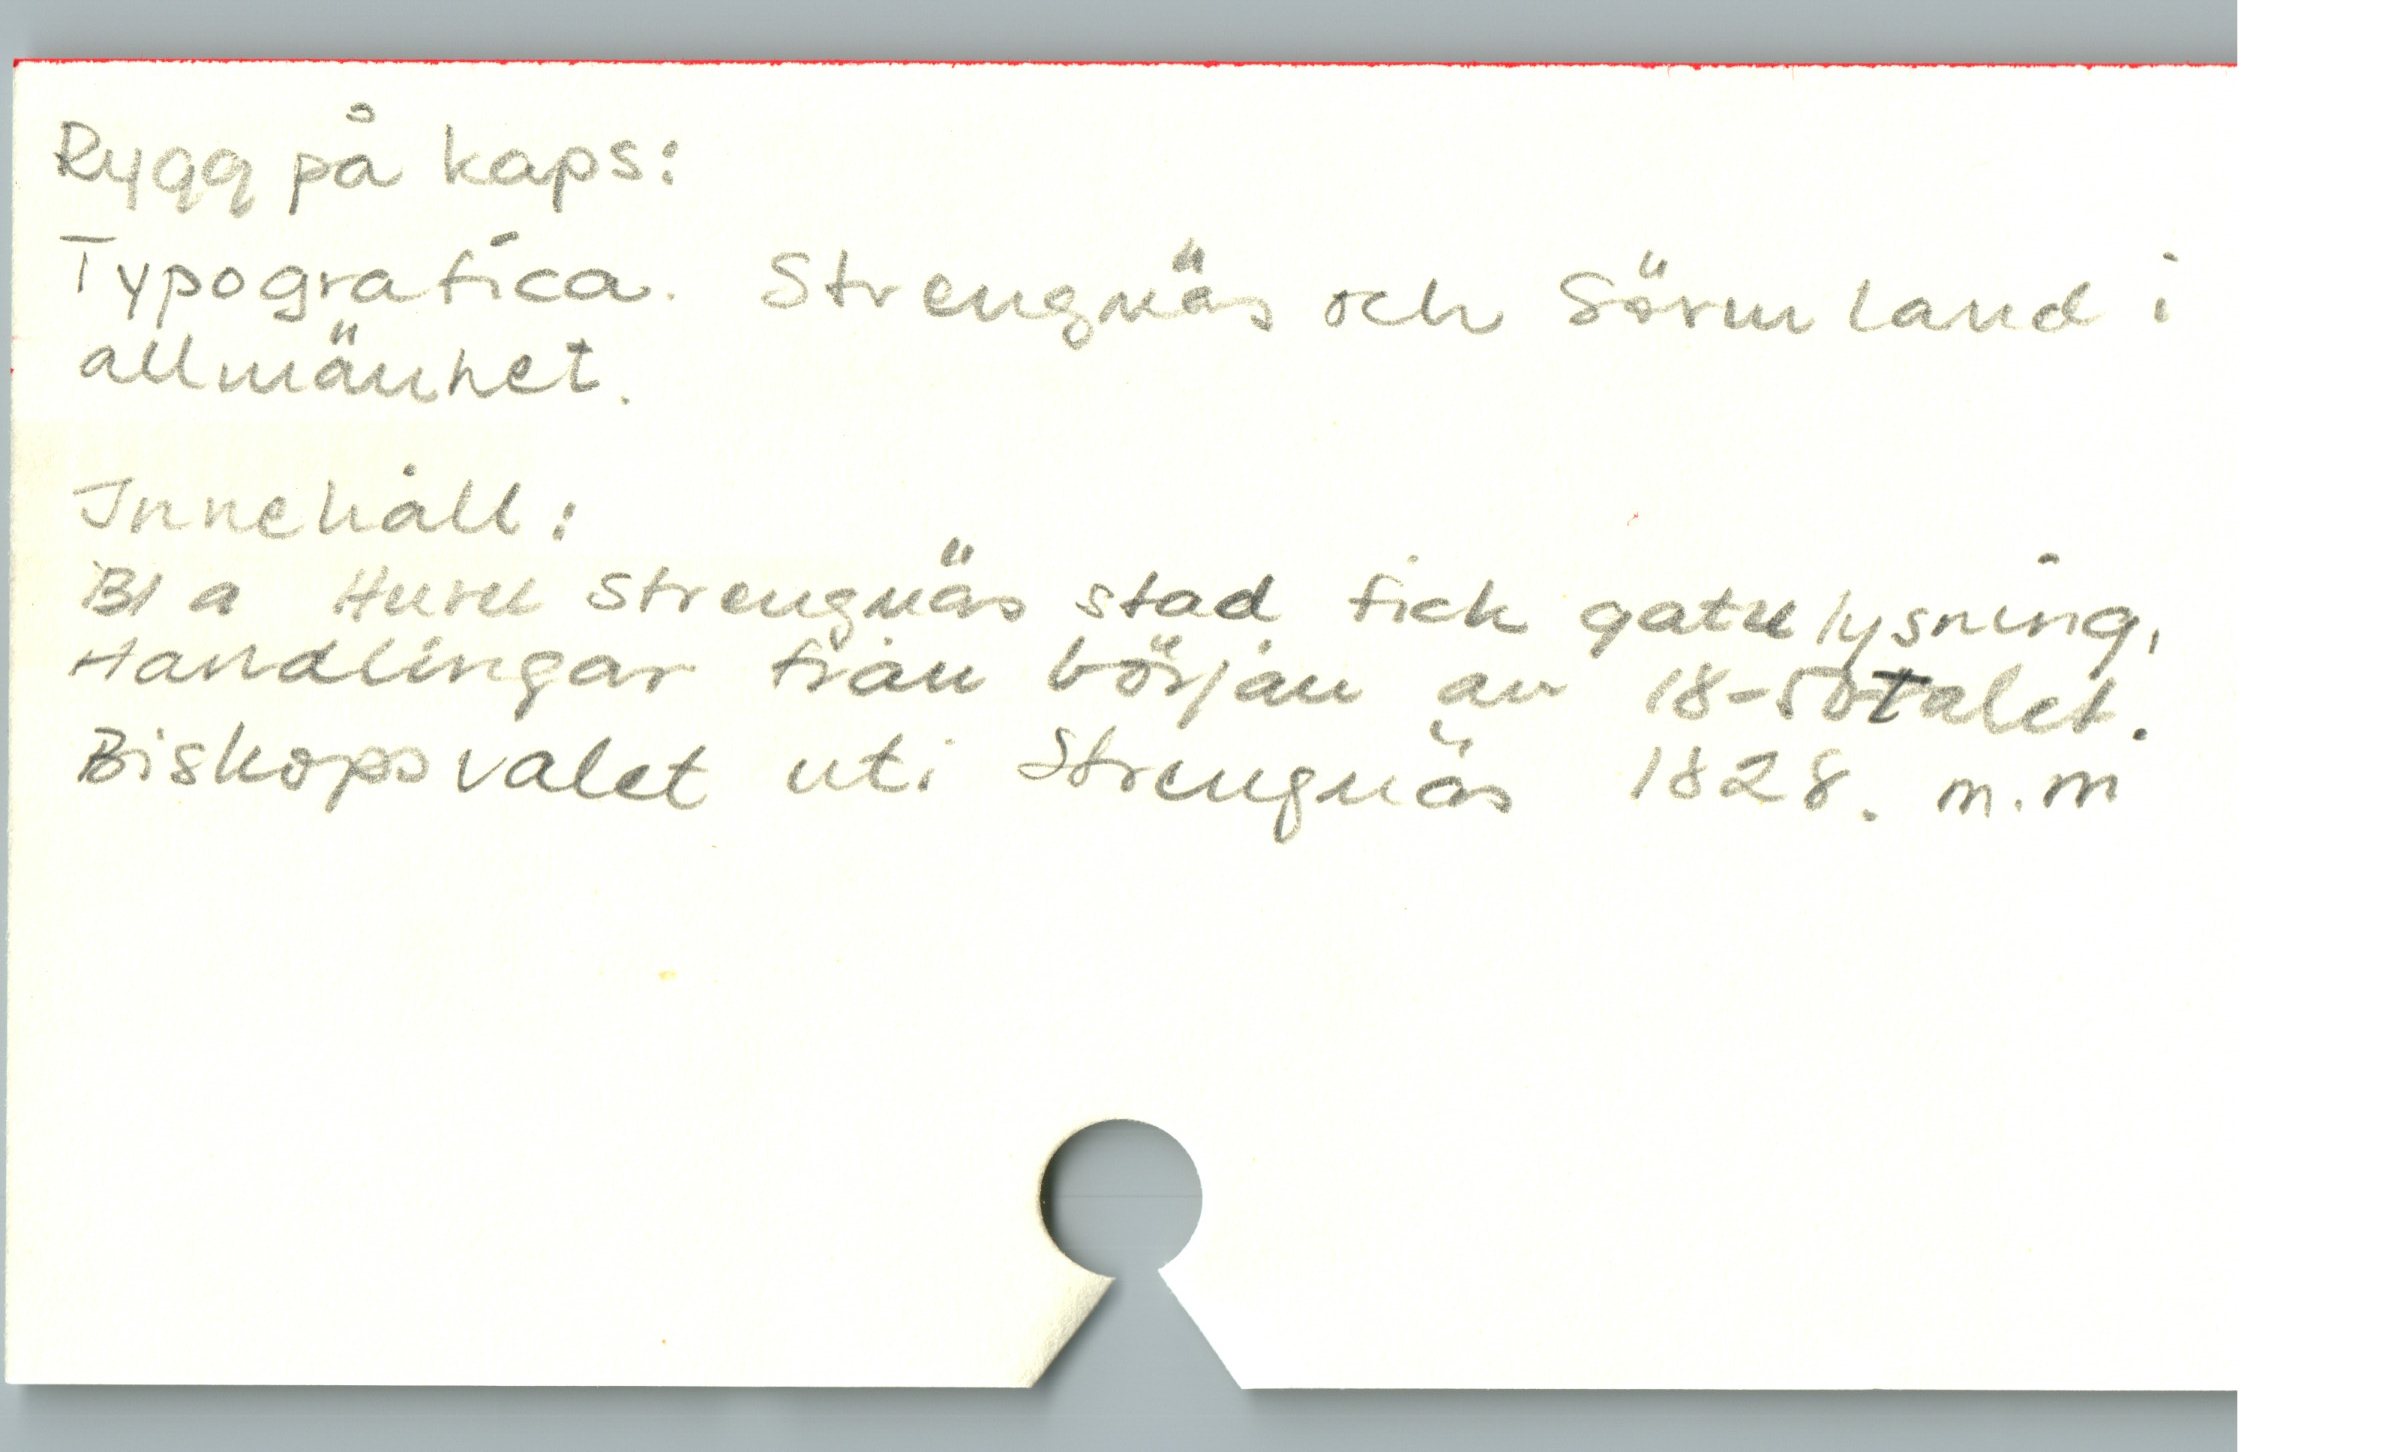 Rygg på kaps:
Typografica. Strengnäs och Sörmland i
allmänhet.
Innehåll:
Bl a Huru Strengnäs stad fick gatulysning,
Handlingar från början av 18-50talet.
Biskopsvalet uti Strengnäs 1828. m.m